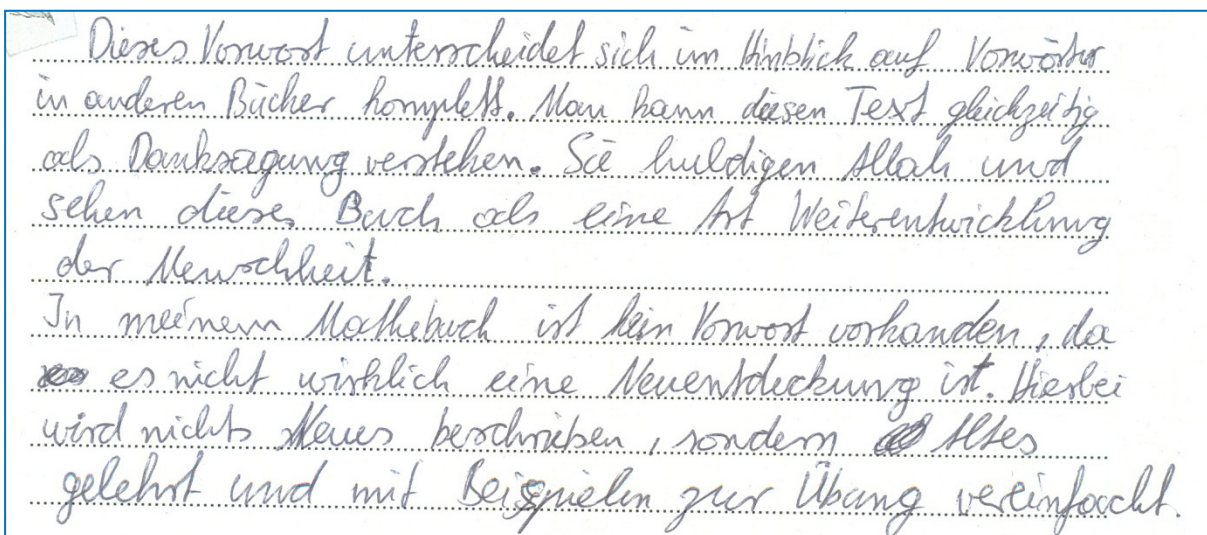 Dieses Vorwort unterscheidet sich im Hinblick auf Vorwörter
in anderen Bücher komplett. Man kann diesen Text gleichzeitig
als Danksagung verstehen. Sie huldigen Allah und
sehen dieses Buch als eine Art Weiterentwicklung
der Menschheit.
In meinem Mathebuch ist kein Vorwort vorhanden, da
es nicht wirklich eine Neuentdeckung ist. Hierbei
wird nichts Neues beschrieben, sondern Altes
gelehrt und mit Beispielen zur Übung vereinfacht.